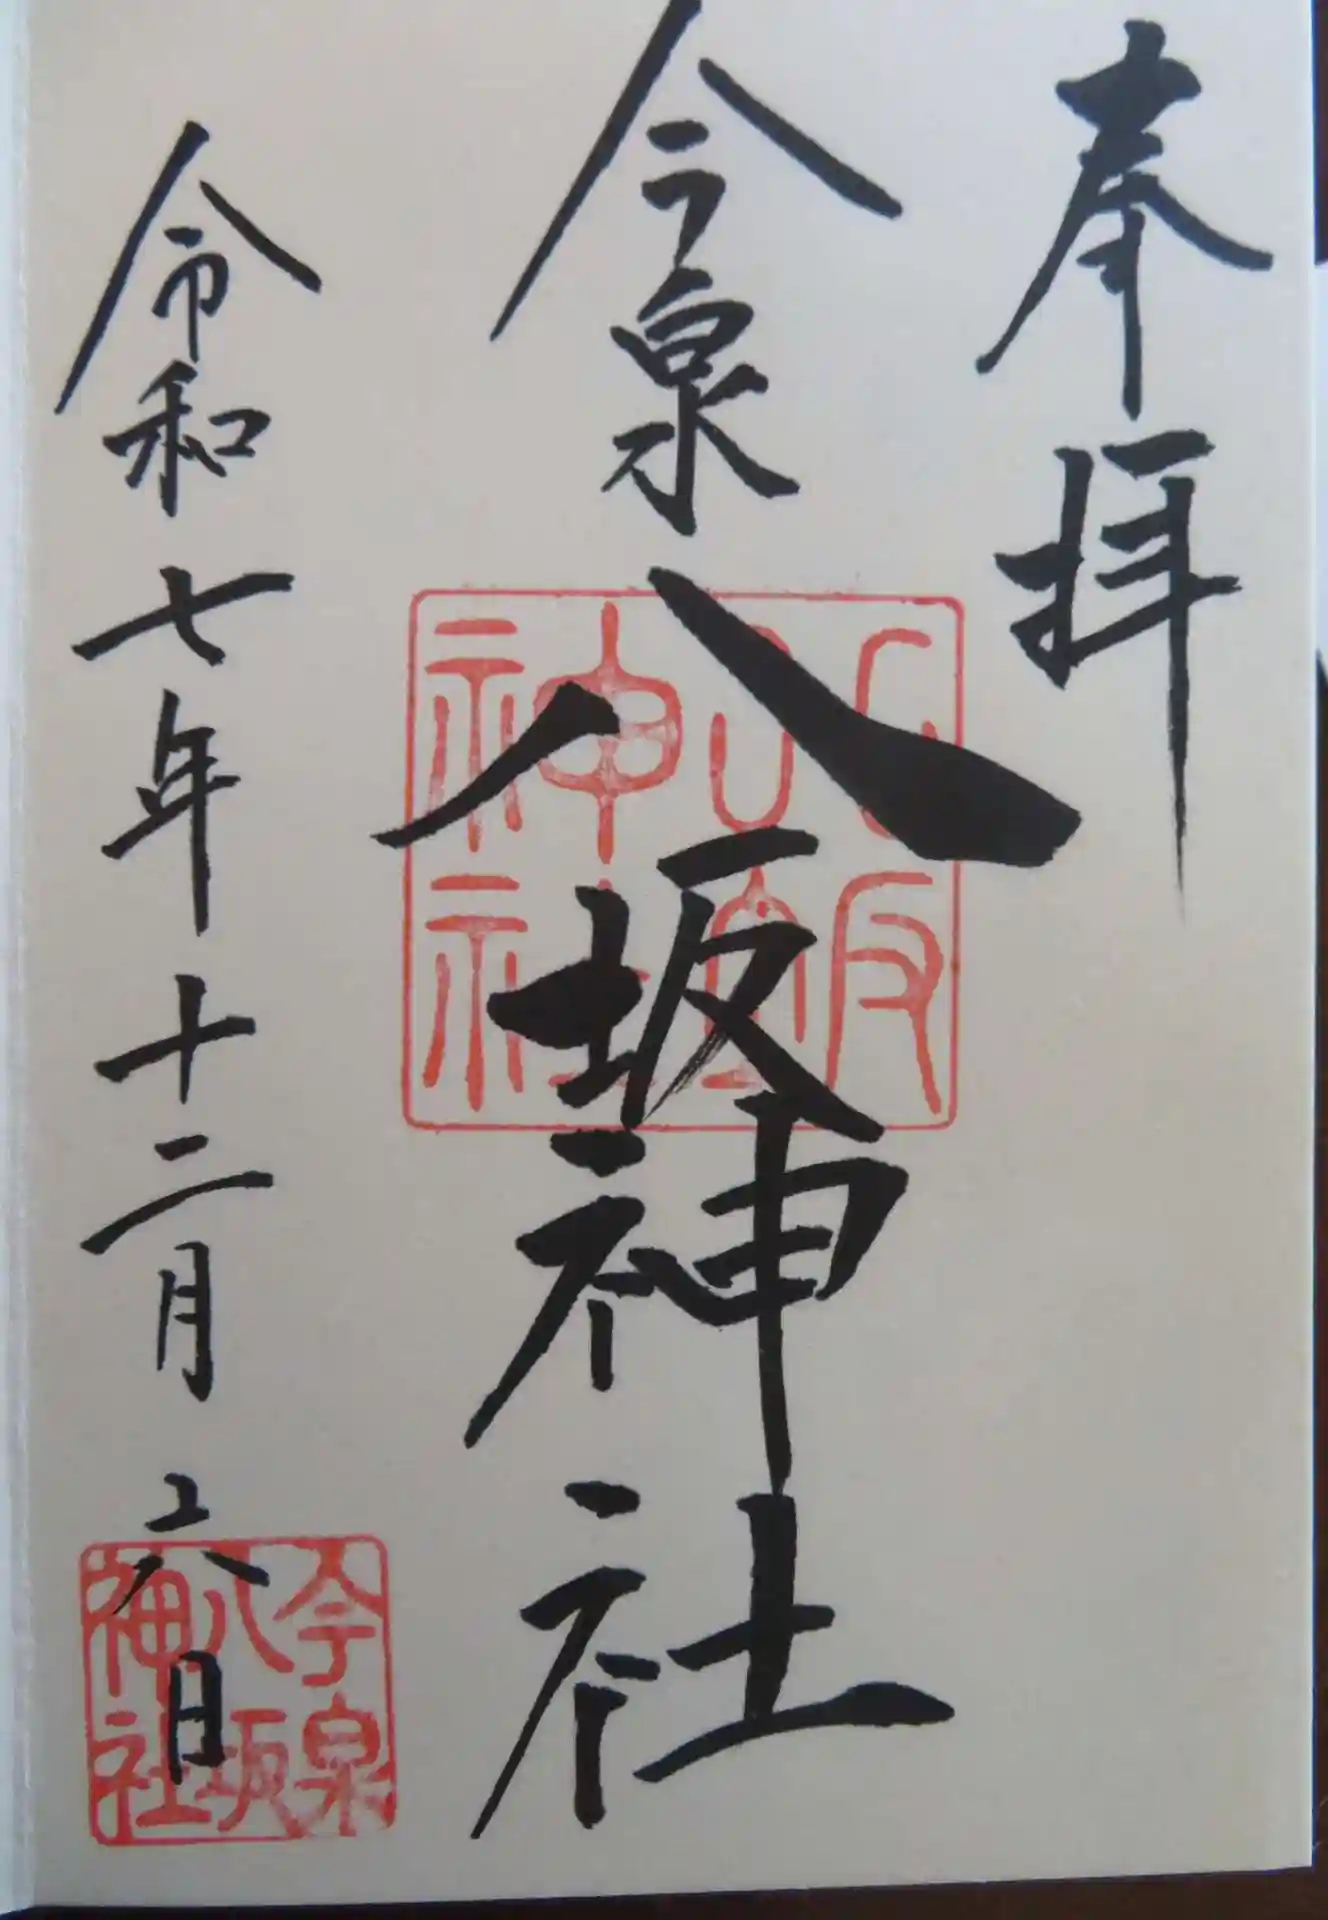 奉拝
今泉
八坂神社
令和七年十二月六日
八坂
神社
今泉
八坂
神社